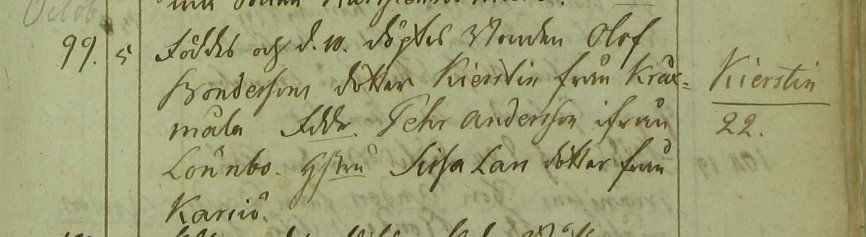 Octob
99. 5 Föddes och d. 10. döptes Bonden Olof
Bondessons dotter Kierstin från Kråx=
måla Fddr. Pehr Andersson ifrån
Lönnbo. Hstru Sissa Lars dotter från
Karsiö.
Kierstin
22.